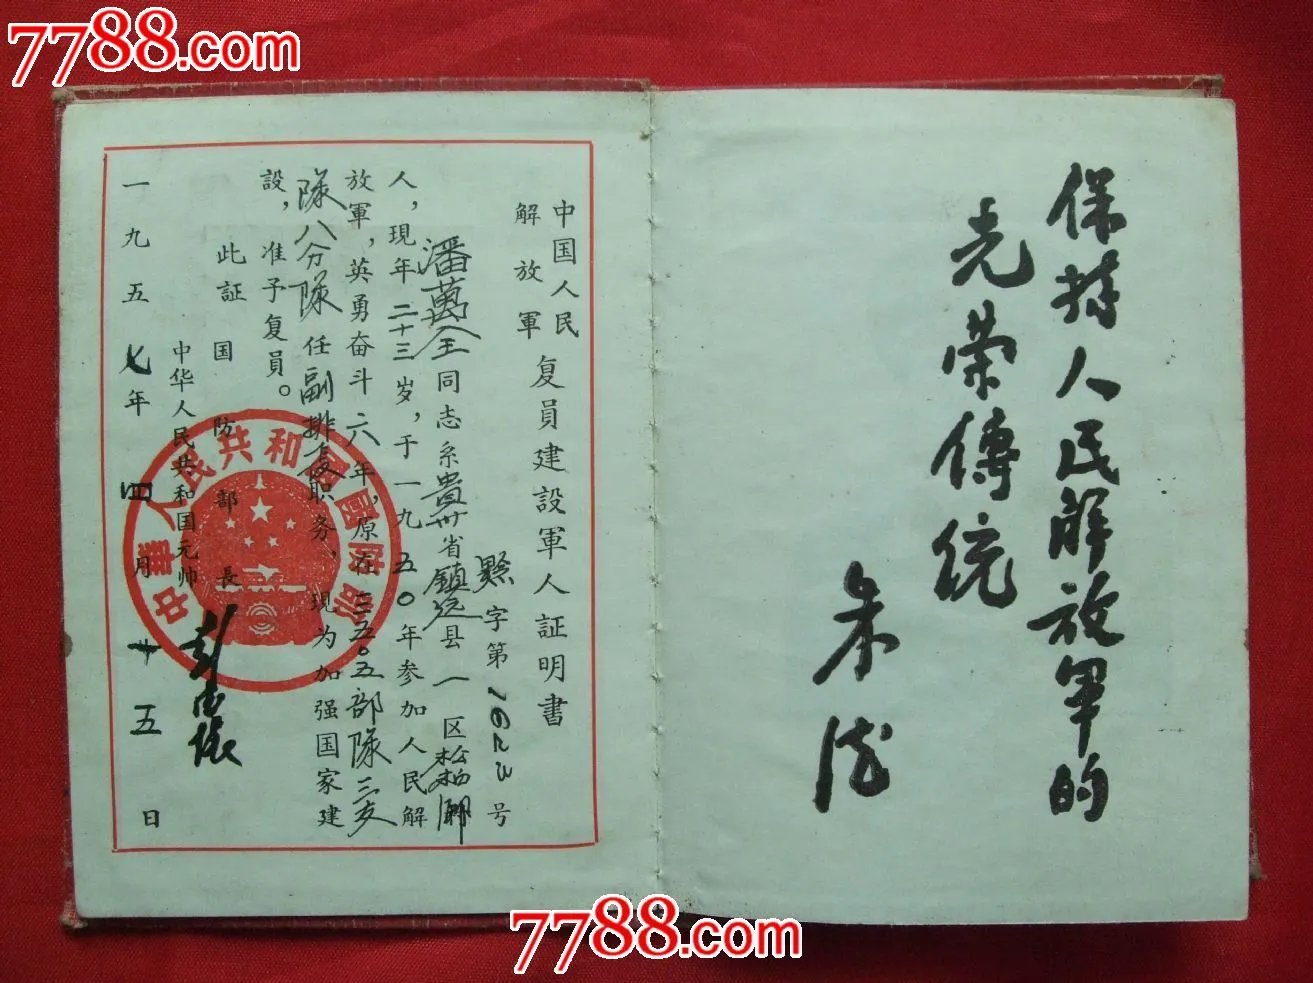 7788.com
保持人民解放軍的
光荣傳統
朱德
中国人民
解放軍
复員建設軍人証明書
黔字第1922号
潘萬全同志系貴州省鎮远县一区松柏鄉
人，現年二十三岁，于一九五〇年参加人民解
放軍，英勇奋斗六年，原在三五〇五部隊三支
隊八分隊任副排長职务，現为加强国家建
設，准予复員。
此証
国防部長
中华人民共和国元帅
彭德懷
一九五七年四月十五日
中華人民共和國國防部
7788.com